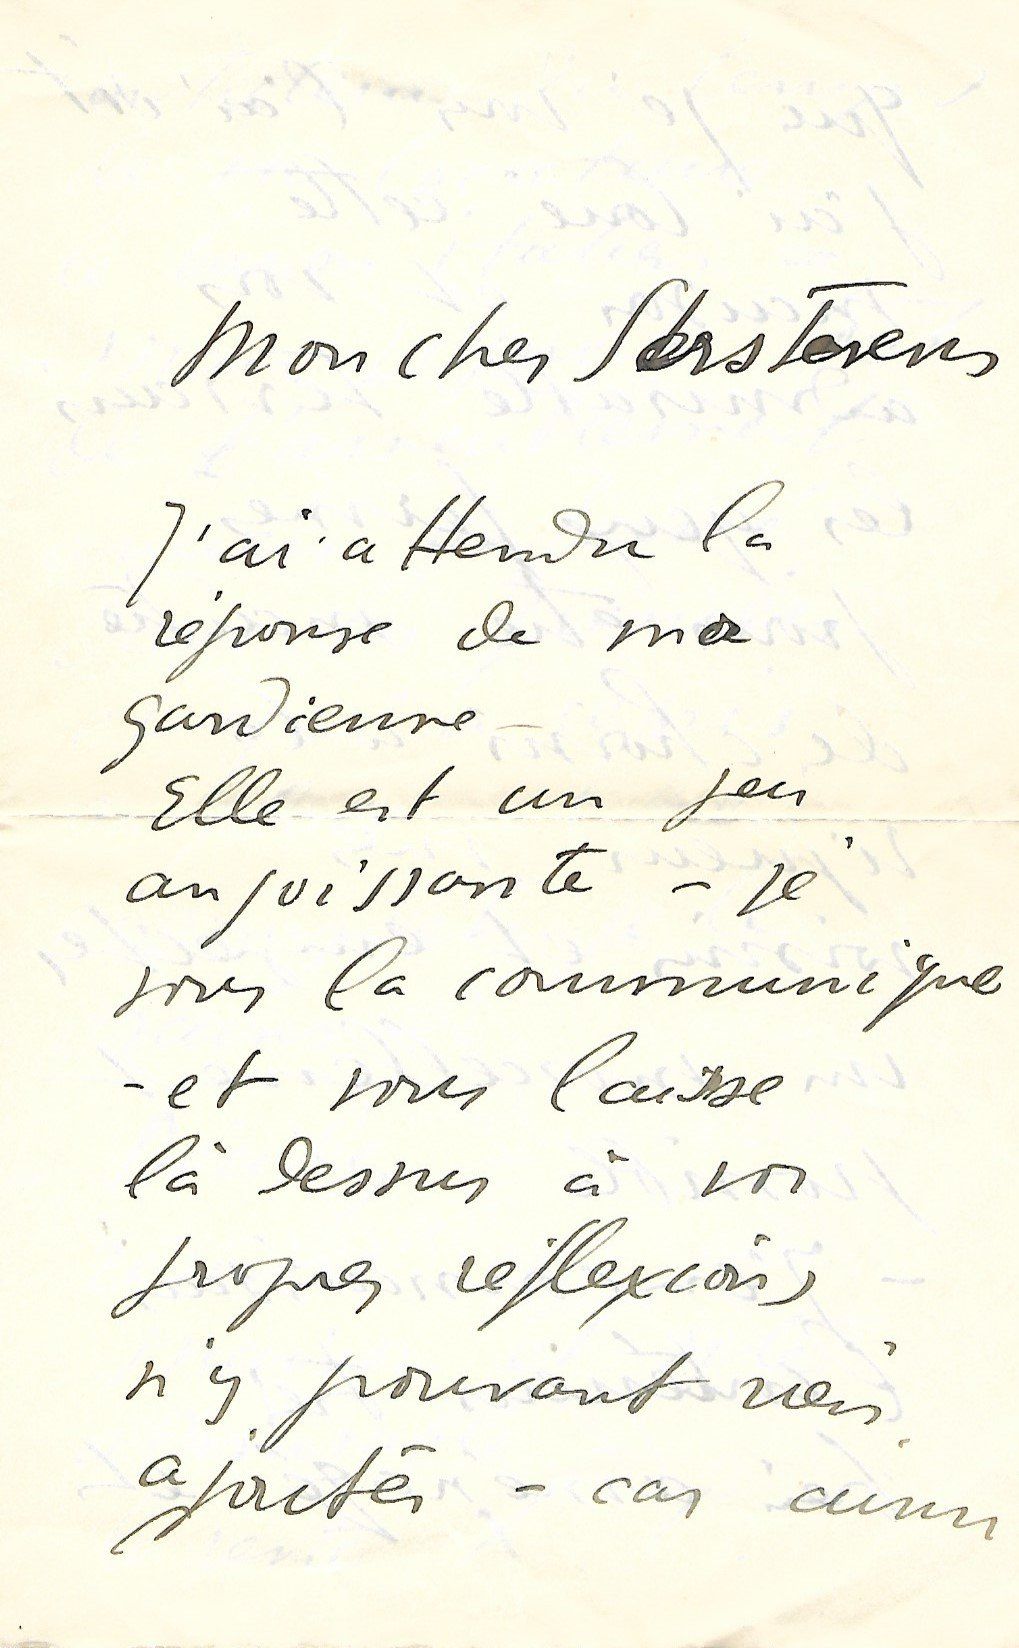 Mon cher t'Serstevens
J'ai attendu la
réponse de ma
gardienne –
Elle est un peu
angoissante – je
vous la communique
– et vous laisse
là dessus à vos
propres réflexions
n'y pouvant rien
ajouter – car ainsi